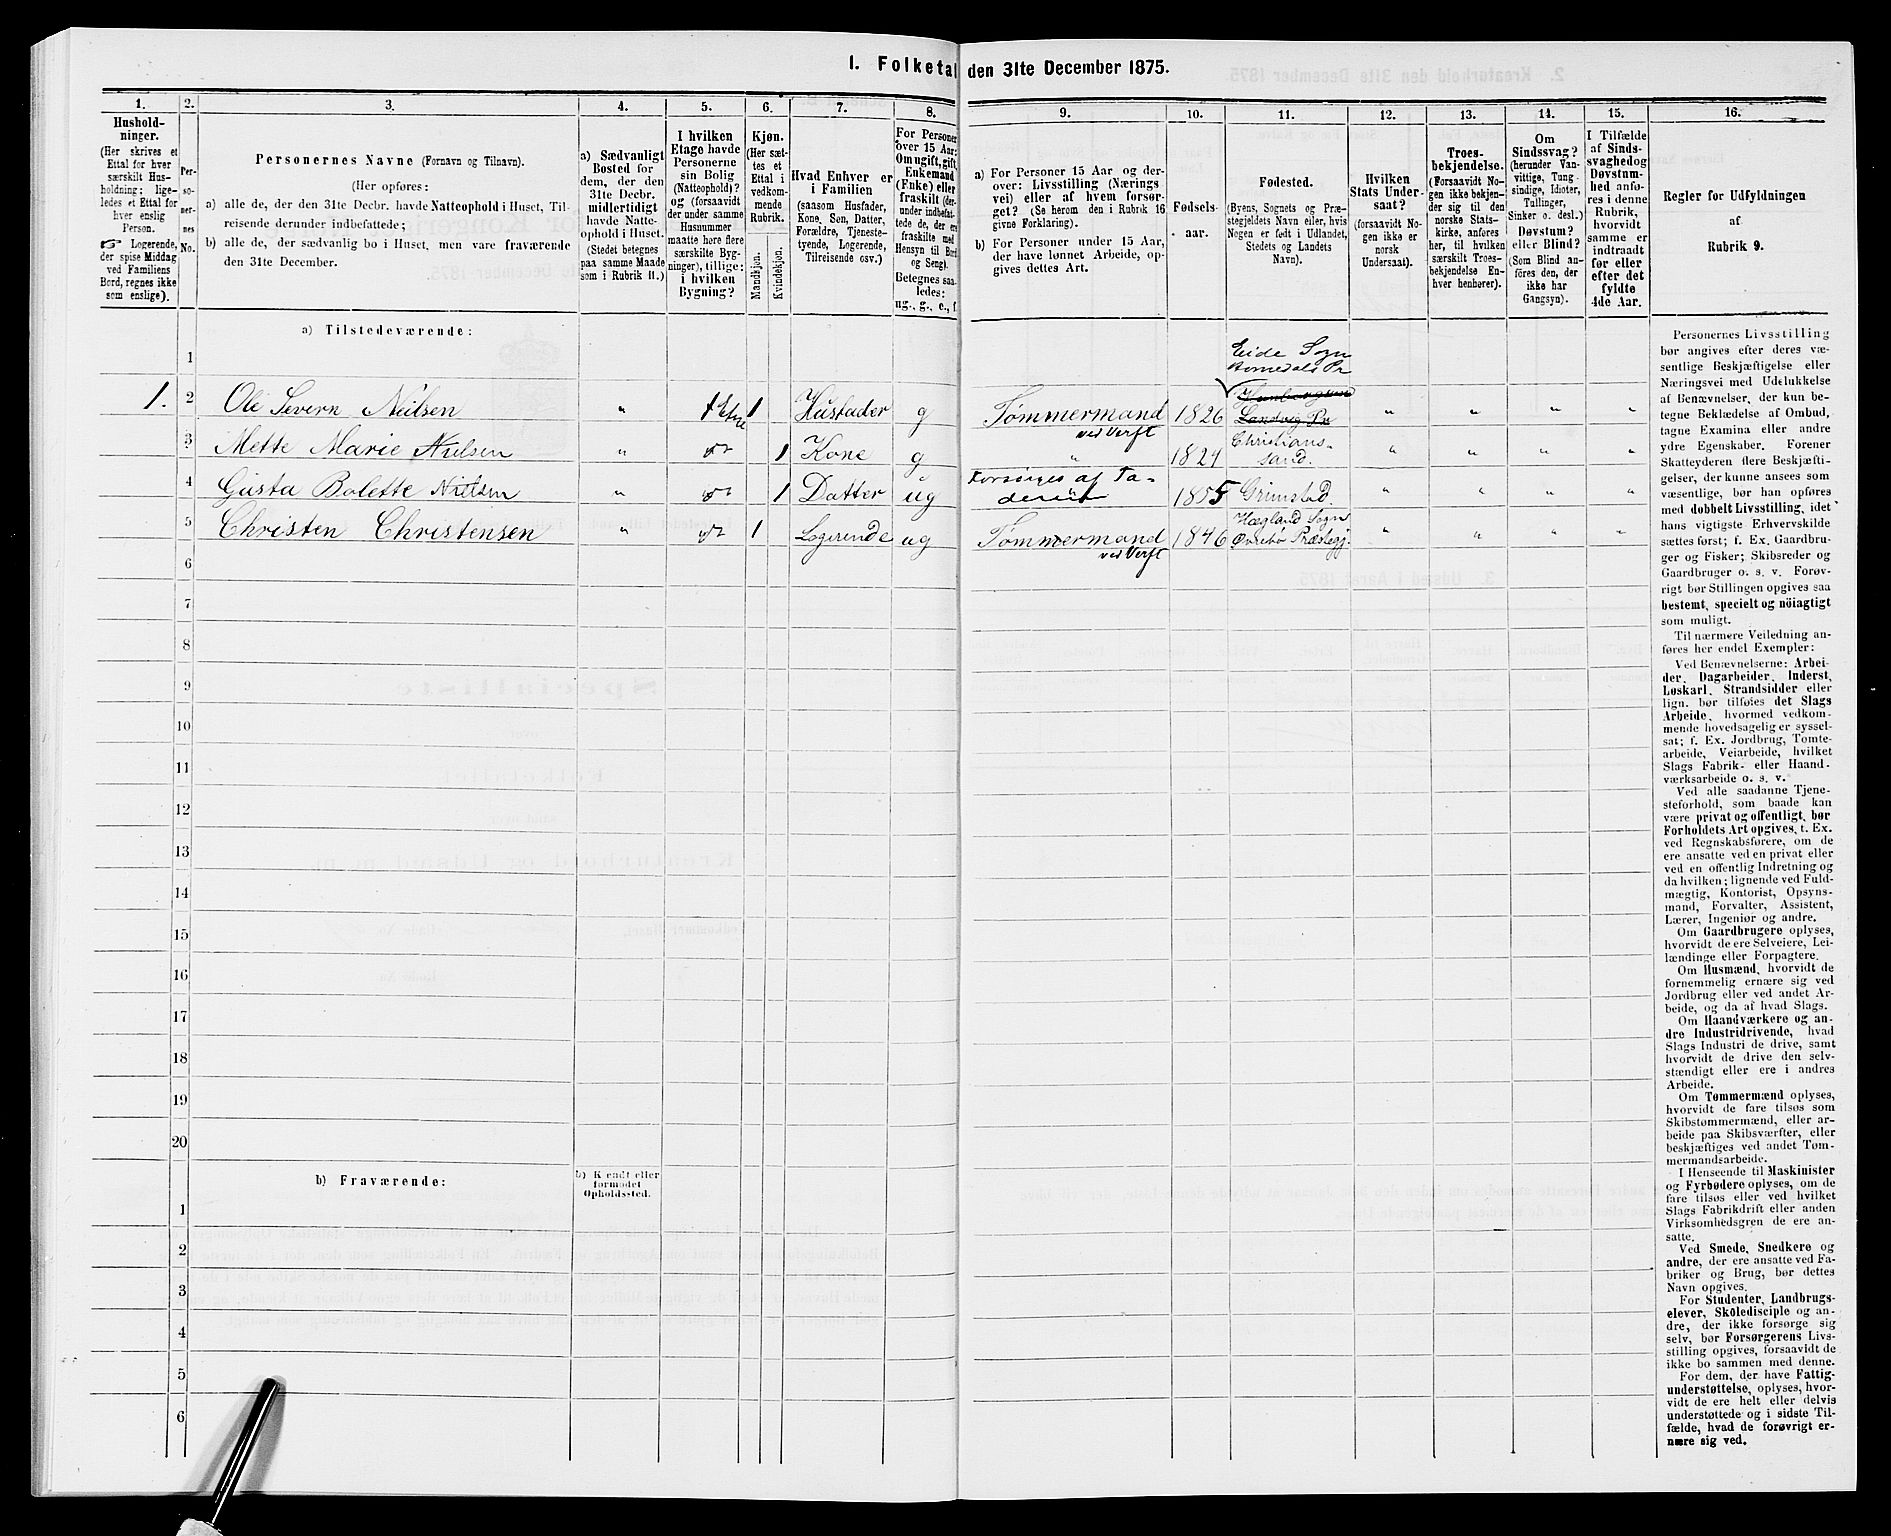 1. Folketal den 31te December 1875.
1.
Hushold-
ninger.
(Her skrives et
Ettal for hver
særskilt Hus-
holdning; lige-
ledes et Ettal for
hver enslig
Person.
☞ Logerende,
der spise Middag
ved Familiens
Bord, regnes ikke
som enslige).
2.
Per-
so-
ner-
nes
No.
3.
Personernes Navne (Fornavn og Tilnavn).
(Her opføres:
a) alle de, der den 31te Decbr. havde Natteophold i Huset, Til-
reisende derunder indbefattede;
b) alle de, der sædvanlig bo i Huset, men vare fraværende
den 31te December.
4.
a) Sædvanligt
Bosted for
dem, der den
31te Decbr.
midlertidigt
havde Natte-
ophold i Huset.
(Stedet betegnes
paa samme Maade
som i Rubrik 11.)
5.
I hvilken
Etage havde
Personerne
sin Bolig
(Natteophold)?
og (forsaavidt
der under samme
Husnummer
maatte høre flere
særskilte Byg-
ninger), tillige:
i hvilken
Bygning?
6.
Kjøn.
(Her sæt-
tes et
Ettal i
vedkom-
mende
Rubrik.
Mandkjøn.
Kvindekjøn.
7.
Hvad Enhver er
i Familien
(saasom Husfader,
Kone, Søn, Datter,
Forældre, Tjeneste-
tyende, Logerende,
Tilreisende osv.)
8.
For Personer
over 15 Aar:
Om ugift, gift,
Enkemand
(Enke) eller
fraskilt (der-
under indbefat-
tede de, der ere
fraskilte med
Hensyn til Bord
og Seng).
Betegnes saa-
ledes:
ug., g., e., f.
9.
a) For Personer 15 Aar og der-
over: Livsstilling (Nærings-
vei) eller af hvem forsør-
get? (Se herom den i Rubrik 16
givne Forklaring).
b) For Personer under 15 Aar,
der have lønnet Arbeide, op-
gives dettes Art.
10.
Fødsels-
aar.
11.
Fødested.
(Byens, Sognets og Præ-
stegjeldets Navn eller, hvis
Nogen er født i Udlandet,
Stedets og Landets
Navn).
12.
Hvilken
Stats Under-
saat?
(forsaavidt No-
gen ikke er
norsk
Undersaat).
13.
Troes-
bekjendelse.
(Forsaavidt No-
gen ikke bekjen-
der sig til den
norske Stats-
kirke, anføres
her, til hvilken
særskilt Troes-
bekjendelse En-
hver henhører).
14.
Om
Sindssvag?
(herunder Van-
vittige, Tung-
sindige, Idioter,
Tullinger,
Sinker o. desl.)
Døvstum?
eller Blind?
(Som Blind an-
føres den, der
ikke har
Gangsyn).
15.
I Tilfælde
af Sinds-
svaghedog
Døvstum-
hed anfø-
res i denne
Rubrik,
hvorvidt
samme er
indtraadt
før eller
efter det
fyldte
4de Aar.
16.
Regler for Udfyldningen
af
Rubrik 9.
a) Tilstedeværende:
1
Eide Sogn
Homedals Pr
1. 2 Ole Severn Neilsen " 1 Etge 1 Hustader g Tømmermand ved Verft 1826 Landvig Pr " " " "
3 Mette Marie Nielsen " do 1 Kone g " 1824 Christianssand. " " " "
4 Gusta Bolette Nielsen " do 1 Datter ug Forsørges af Faderen 1855 Grimstad. " " " "
5 Christen Christensen " do 1 Logerende ug Tømmermand ved Verft 1846 Hægland Sogn Øvrebø Præstegj. " " " "
6
7
8
9
10
11
12
13
14
15
16
17
18
19
20
b) Fraværende:
b) Kjendt eller
formodet
Opholdssted.
1
2
3
4
5
6
Personernes Livsstilling
bør angives efter deres væ-
sentlige Beskjæftigelse eller
Næringsvei med Udelukkelse
af Benævnelser, der kun be-
tegne Beklædelse af Ombud,
tagne Examina eller andre
ydre Egenskaber. Forener
Skatteyderen flere Beskjæfti-
gelser, der kunne ansees som
væsentlige, bør han opføres
med dobbelt Livsstilling, idet
hans vigtigste Erhvervskilde
sættes først; f. Ex. Gaardbru-
ger og Fisker; Skibsreder og
Gaardbruger o. s. v. Forøv-
rigt bør Stillingen opgives saa
bestemt, specielt og nöiagtigt
som muligt.
Til nærmere Veiledning an-
føres her endel Exempler:
Ved Benævnelserne: Arbei-
der, Dagarbeider, Inderst,
Løskarl, Strandsidder eller
lign. bør tilføies det Slags
Arbeide, hvormed vedkom-
mende hovedsagelig er syssel-
sat; f. Ex. Jordbrug, Tomte-
arbeide, Veiarbeide, hvilket
Slags Fabrik- eller Haand-
værksarbeide o. s. v.
Ved alle saadanne Tjene-
steforhold, som baade kan
være privat og offentligt, bør
Forholdets Art opgives, t. Ex.
ved Regnskabsførere, om de
ere ansatte ved en privat eller
ved en offentlig Indretning og
da hvilken; lignende ved Fuld-
mægtig, Kontorist, Opsyns-
mand, Forvalter, Assistent,
Lærer, Ingeniør og andre.
Om Gaardbrugere oplyses,
hvorvidt de ere Selveiere, Lei-
lændinge eller Forpagtere.
Om Husmænd, hvorvidt de
fornemmelig ernære sig ved
Jordbrug eller ved andet Ar-
beide, og da af hvad Slags.
Om Haandværkere og an-
dre Industridrivende, hvad
Slags Industri de drive, samt
hvorvidt de drive den selv-
stændigt eller ere i andres
Arbeide.
Om Tømmermænd oplyses,
hvorvidt de fare tilsøs som
Skibstømmermænd, eller ar-
beide paa Skibsværfter, eller
beskjæftiges ved andet Tøm-
mermandsarbeide.
I Henseende til Maskinister
og Fyrbødere oplyses, om de
fare tilsøs eller ved hvilket
Slags Fabrikdrift eller anden
Virksomhedsgren de ere an-
satte.
Ved Smede, Snedkere og
andre, der ere ansatte ved Fa-
briker og Brug, bør dettes
Navn opgives.
For Studenter, Landbrugs-
elever, Skoledisciple og an-
dre, der ikke forsørge sig
selv, bør Forsørgerens Livs-
stilling opgives, forsaavidt de
ikke bo sammen med denne.
For dem, der have Fattig-
understøttelse, oplyses, hvor-
vidt de ere helt eller delvis
understøttede og i sidste Til-
fælde, hvad de forøvrigt er-
nære sig ved.